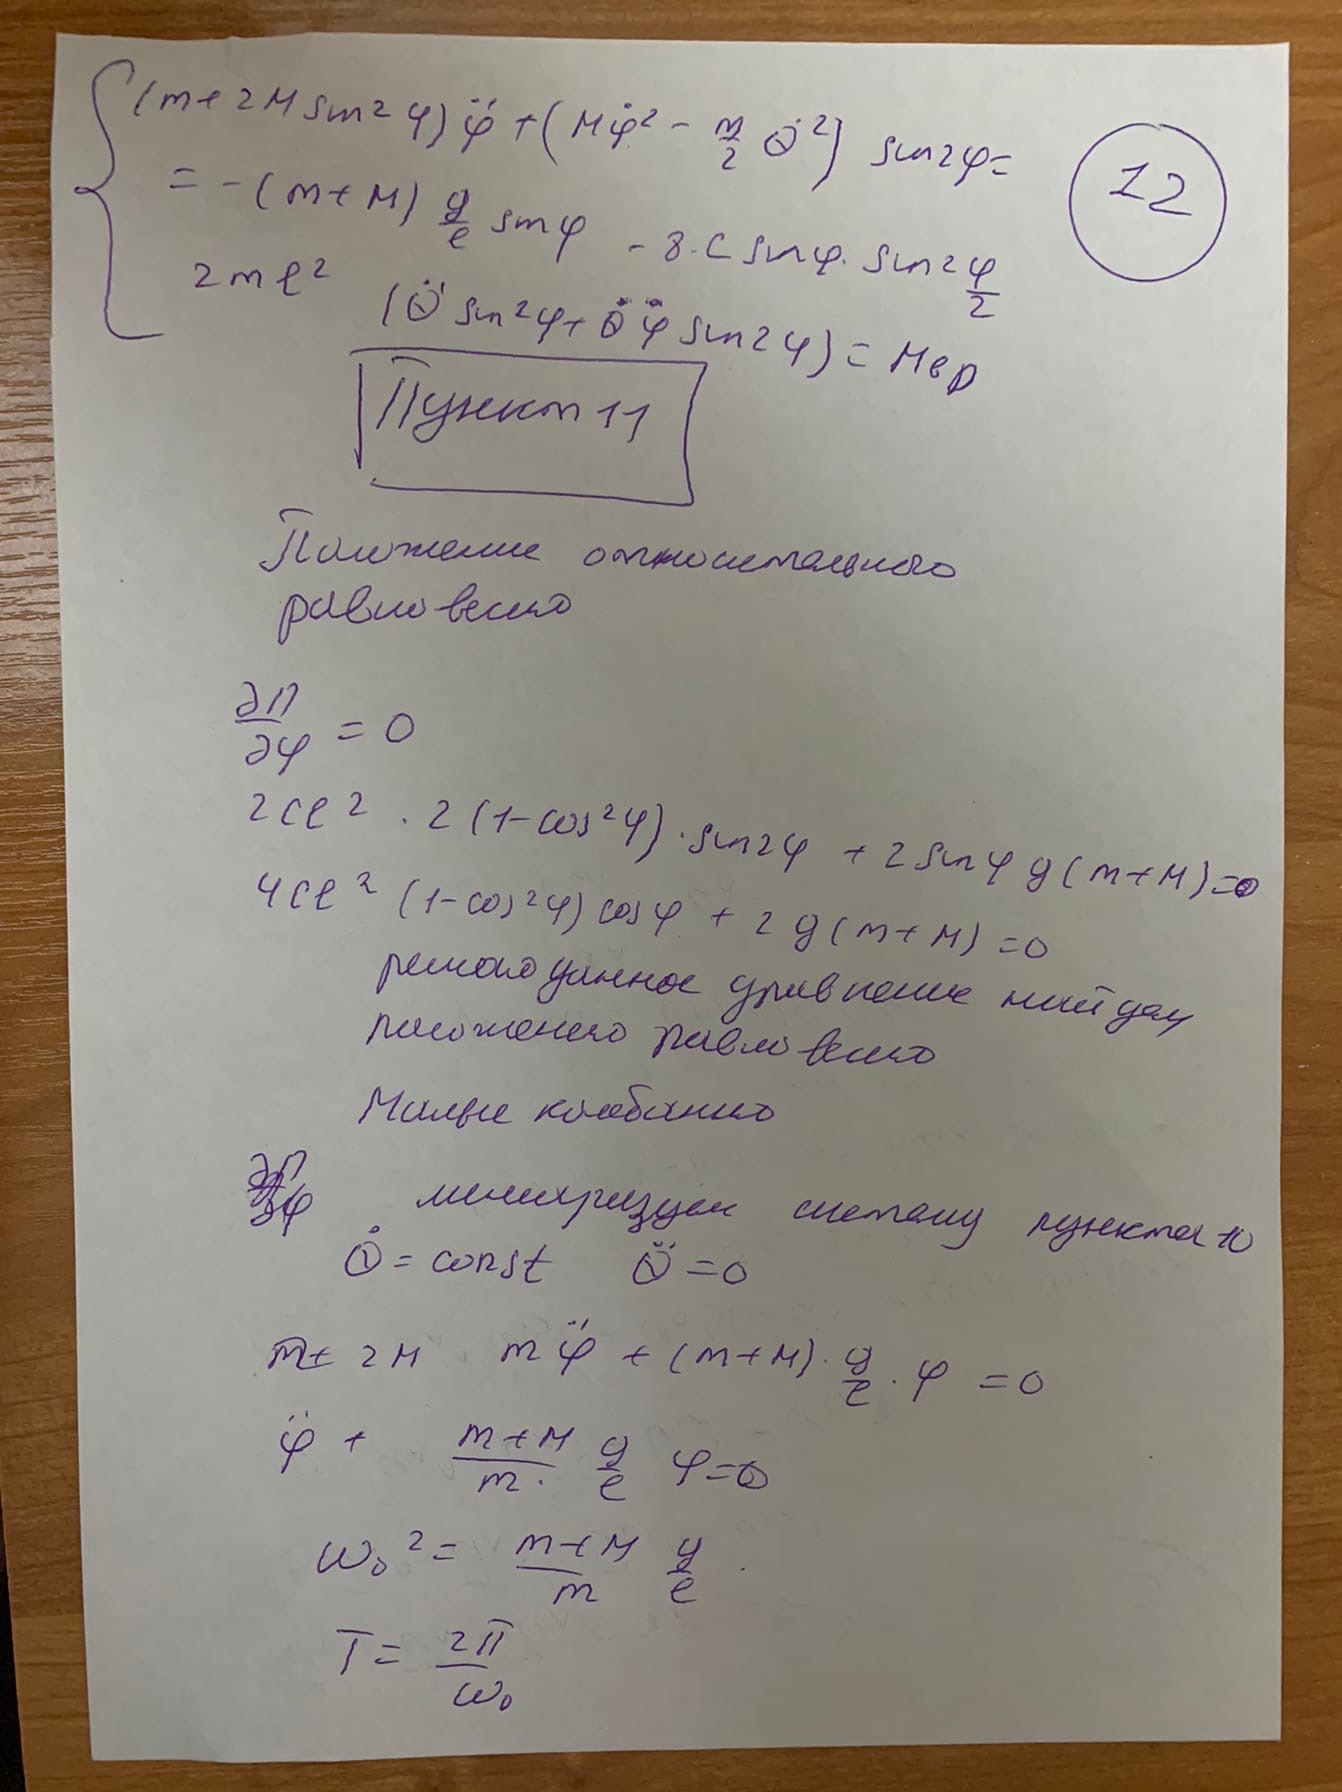 (m+2M sin²φ)φ̈ + (Mφ̇² - m/2 θ̇²) sin2φ=
12
= -(m+M) g/e sinφ - 8·C sinφ· sin² φ/2
2mℓ² (θ̈ sin²φ + θ̈ φ̈ sin2φ) = Mвр
Пункт 11
Положение относительного
равновесия
∂П/∂φ = 0
2cℓ² · 2(1-cos²φ)·sin2φ + 2 sinφ g(m+M)=0
4cℓ² (1-cos²φ) cosφ + 2g(m+M)=0
решая данное уравнение найдем
положения равновесия
Малые колебания
линиаризуем систему пункта 10
θ̇ = const θ̈ = 0
m+ 2M mφ̈ + (m+M)· g/e · φ = 0
φ̈ + (m+M)/m · g/e φ=0
ω₀² = (m+M)/m g/e
T = 2π/ω₀